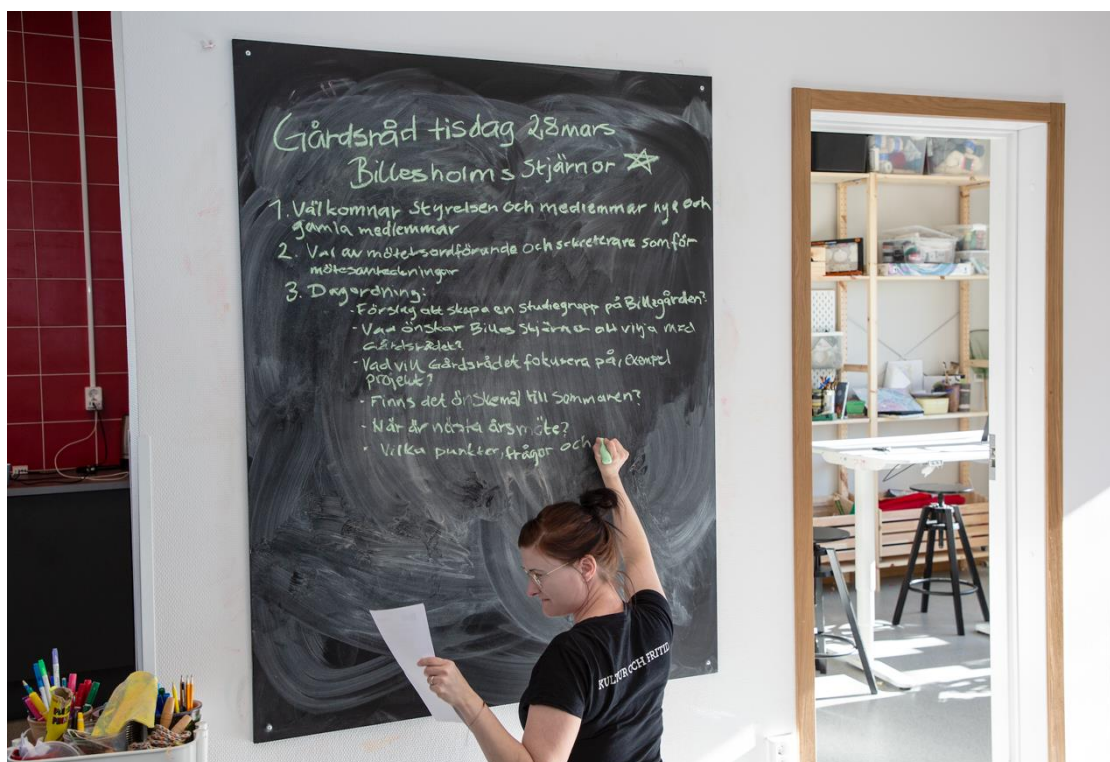 Gårdsråd tisdag 28 mars
Billesholms Stjärnor
1. Välkomnar Styrelsen och medlemmar nya och
gamla medlemmar
2. Val av mötetsordförande och sekreterare som för
mötesanteckningar
3. Dagordning:
- Förslag att skapa en studiegrupp på Billegården?
- Vad önskar Billes Stjärnor att vilja med
Gårdsrådet?
- Vad vill Gårdsrådet fokusera på, exempel
projekt?
- Finns det önskemål till Sommaren?
- När är nästa årsmöte?
- Vilka punkter, frågor och
KULTUR OCH FRITID